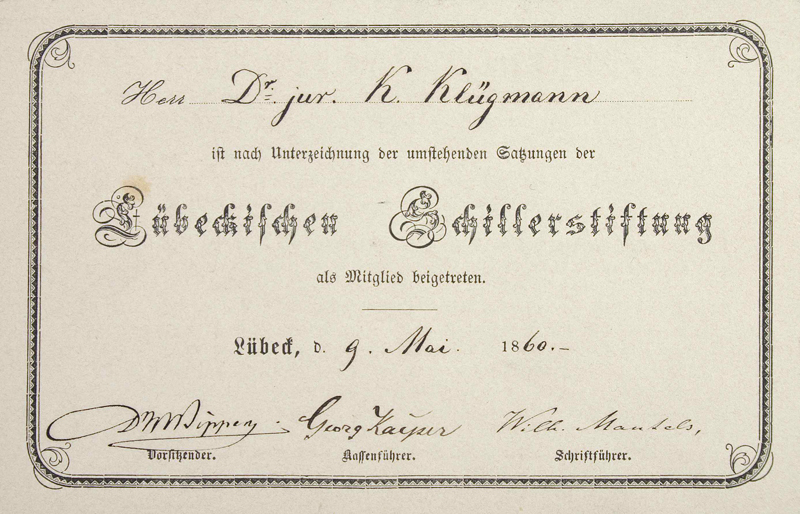 Herr Dr. jur. K. Klügmann
ist nach Unterzeichnung der umstehenden Satzungen der
Lübeckischen Schillerstiftung
als Mitglied beigetreten.
Lübeck, d. 9. Mai. 1860.-
Georg Kaÿser Wilh. Mantels,
Vorsitzender. Kassenführer. Schriftführer.